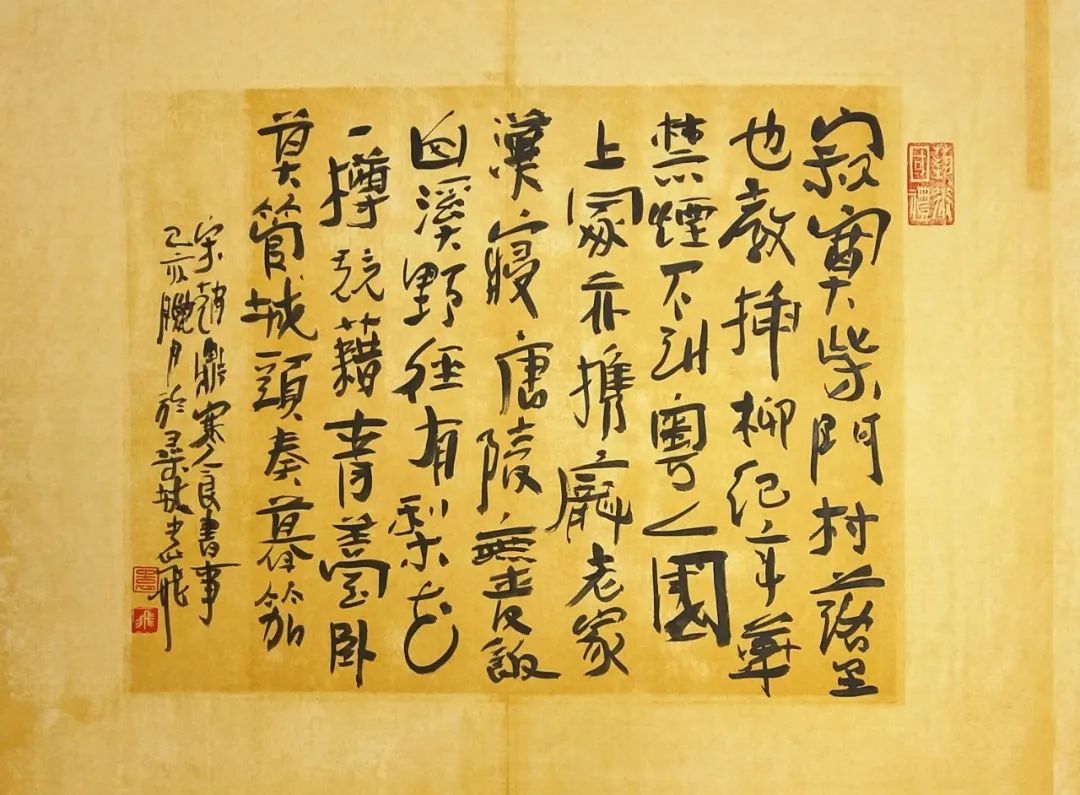 寂寞柴門村落里
也教插柳紀年華
禁煙不到粵人國
上冢亦携龐老家
漢寢唐陵無麥飯
山溪野徑有梨花
一樽競藉青苔卧
莫管城頭奏暮笳
宋趙鼎寒食書事
己亥臘月於